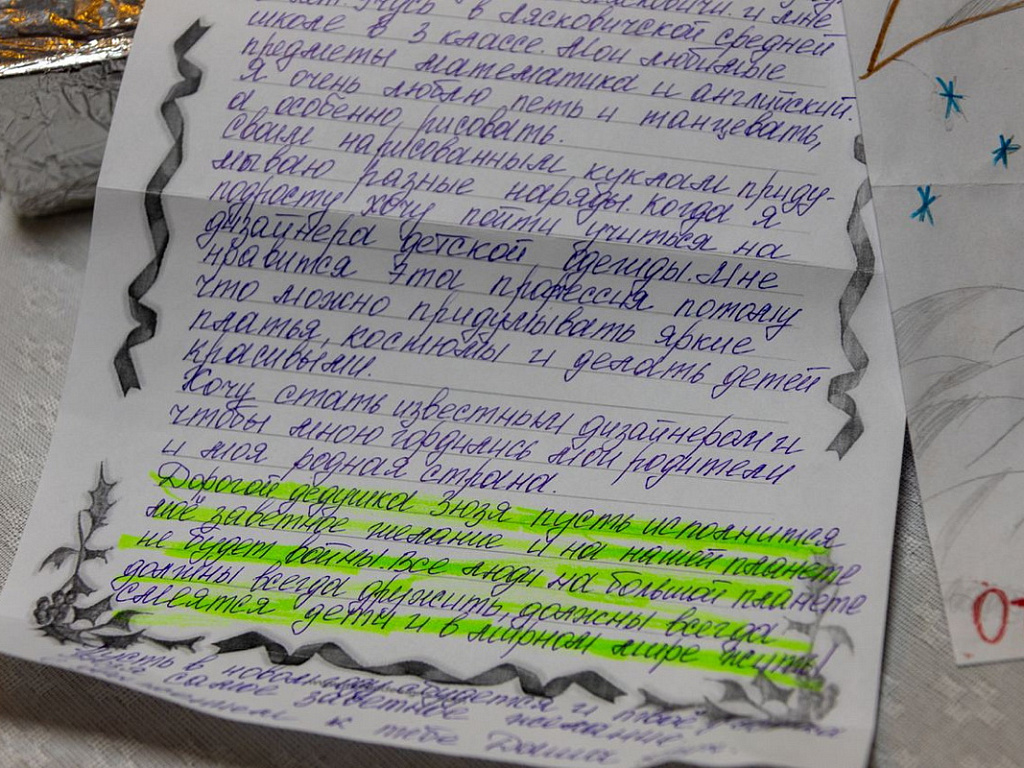 лет. Учусь в Лясковичской средней
школе в 3 классе. Мои любимые
предметы математика и английский.
Я очень люблю петь и танцевать,
а особенно, рисовать.
Своим нарисованным куклам приду-
мываю разные наряды. Когда я
подросту хочу пойти учиться на
дизайнера детской одежды. Мне
нравится эта профессия потому
что можно придумывать яркие
платья, костюмы и делать детей
красивыми.
Хочу стать известным дизайнером и
чтобы мною гордились мои родители
и моя родная страна.
Дорогой дедушка Зюзя пусть исполнится
моё заветное желание и на нашей планете
не будет войны. Все люди на большой планете
должны всегда дружить, должны всегда
смеятся дети и в мирном мире жить!
в новом году сбудется и твоё
самое заветное желание
к тебе Даша